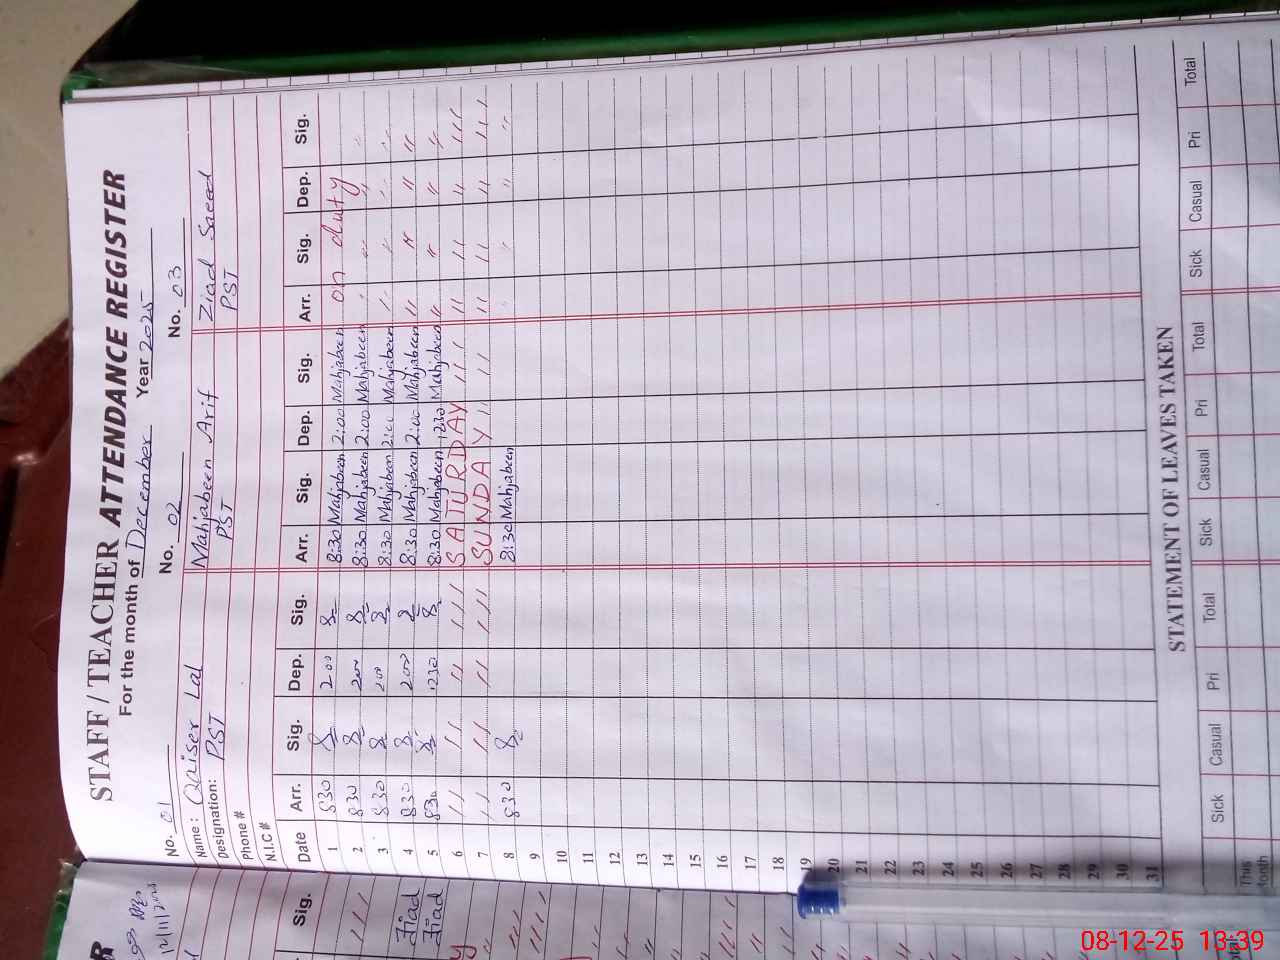 STAFF / TEACHER ATTENDANCE REGISTER
For the month of December Year 2025
No. 01 No. 02 No. 03
Name: Qaiser Lal Mahjabeen Arif Ziad Saeed
Designation: PST PST PST
Phone #
N.I.C #
Date Arr. Sig. Dep. Sig. Arr. Sig. Dep. Sig. Arr. Sig. Dep. Sig.
1 830 200 8:30 Mahjabeen 2:00 Mahjabeen on duty
2 830 200 8:30 Mahjabeen 2:00 Mahjabeen " " " "
3 830 200 8:30 Mahjabeen 2:00 Mahjabeen " " " "
4 830 200 8:30 Mahjabeen 2:00 Mahjabeen " " " "
5 830 1230 8:30 Mahjabeen 1230 Mahjabeen " " " "
6 " " " " SATURDAY " " " " "
7 " " " " SUNDAY " " " " " "
8 830 8:30 Mahjabeen " " " "
9
10
11
12
13
14
15
16
17
18
19
20
21
22
23
24
25
26
27
28
29
30
31
STATEMENT OF LEAVES TAKEN
Sick Casual Pri Total Sick Casual Pri Total Sick Casual Pri Total
This Month
Sig.
Ziad
Ziad
08-12-25 13:39